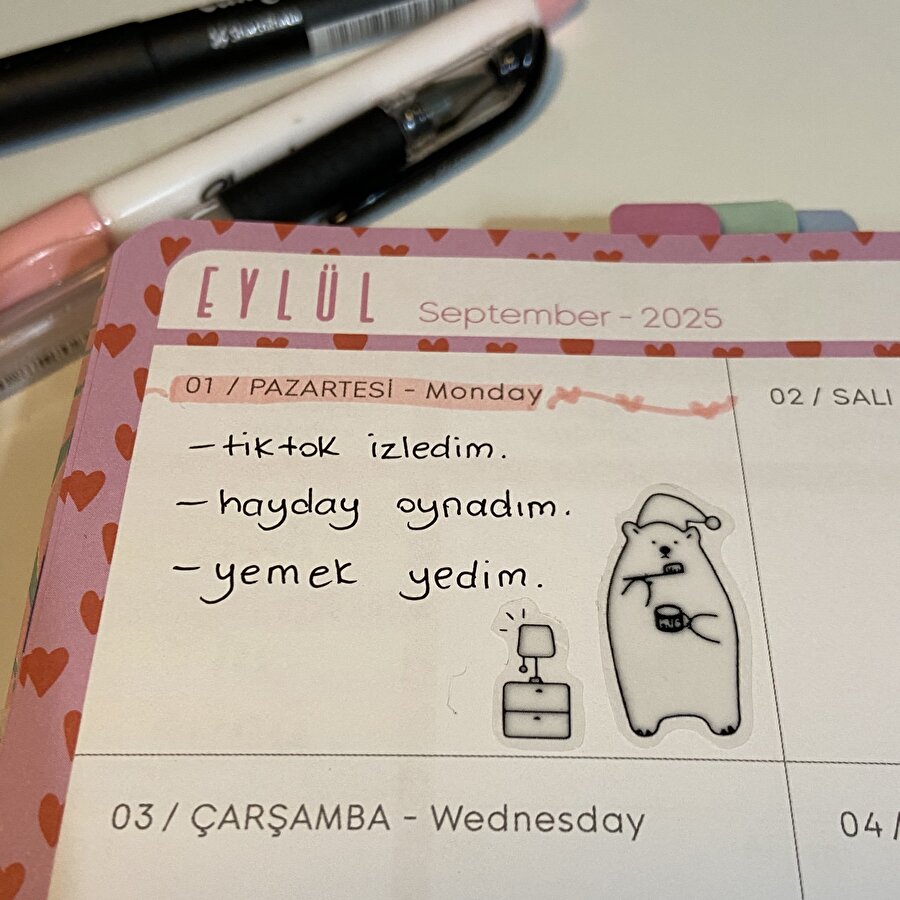 EYLÜL September - 2025
01 / PAZARTESİ - Monday
02 / SALI
- tiktok izledim.
- hayday oynadım.
- yemek yedim.
03 / ÇARŞAMBA - Wednesday
04 /